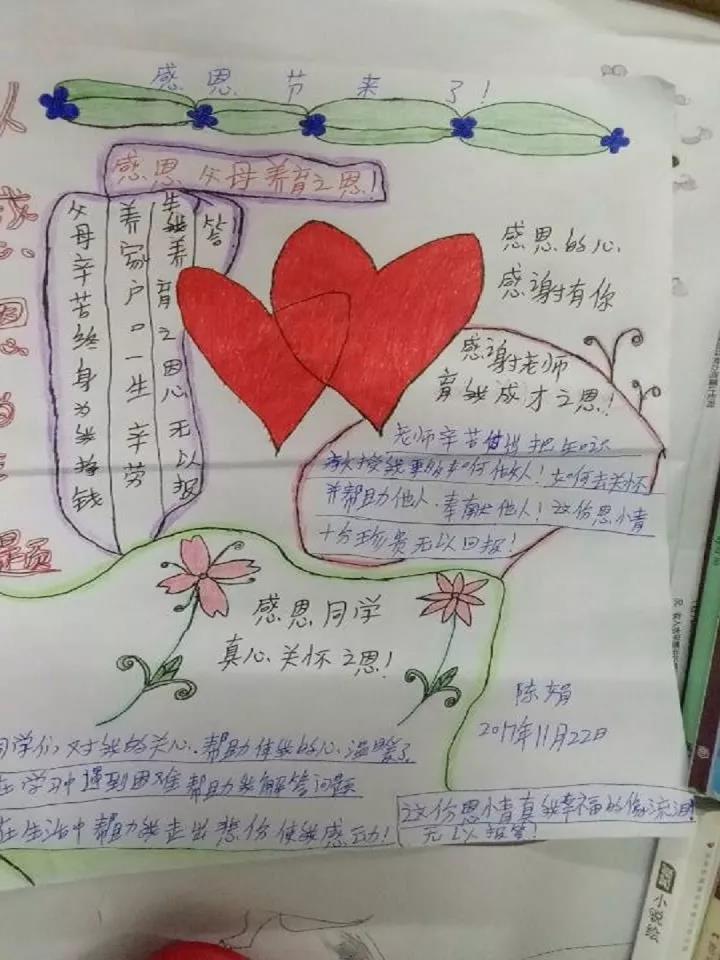 感恩节来了！
感恩父母养育之恩！
父母辛苦终身为我挣钱
养家户口一生辛劳
生我养育之恩无以报
答
感恩的心
感谢有你
感谢老师
育我成才之恩！
老师辛苦付出把知识
教授我
如何去关怀
并帮助他人．奉献他人！这份恩情
十分珍贵无以回报！
感恩同学
真心关怀之恩！
陈娟
2017年11月22日
同学们对我的关心．帮助使我的心温暖了
在学习中遇到困难帮助我解答问题
在生活中帮助我走出悲伤使我感动！
这份恩情真我幸福的像流泪！
无以报答！
小说绘